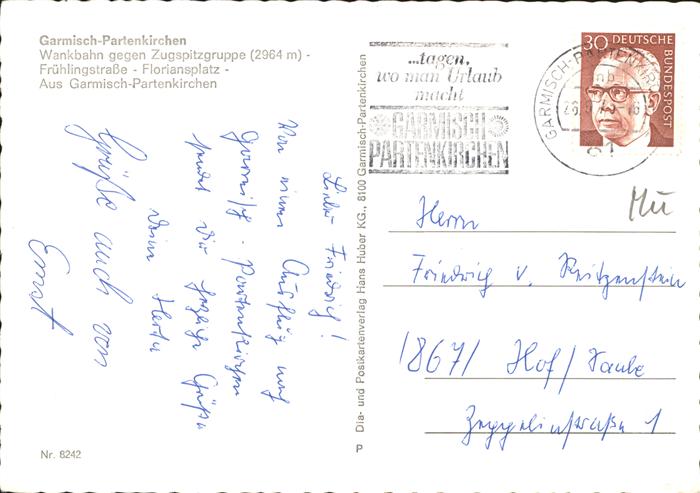 Garmisch-Partenkirchen
Wankbahn gegen Zugspitzgruppe (2964 m) -
Frühlingstraße - Floriansplatz -
Aus Garmisch-Partenkirchen
...tagen,
wo man Urlaub
macht
GARMISCH
PARTENKIRCHEN
GARMISCH-PARTENKIRCHEN
81
30
DEUTSCHE
BUNDESPOST
Lieber Friedrich!
Von einem Ausflug nach
Garmisch-Partenkirchen
sendet Dir herzliche Grüße
Deine Herta
Grüße auch von
Ernst
Dia- und Postkartenverlag Hans Huber KG., 8100 Garmisch-Partenkirchen
Herrn
Friedrich v. Reitzenstein
1867/ Hof/Saale
Zeppelinstraße 1
Nr. 8242
P